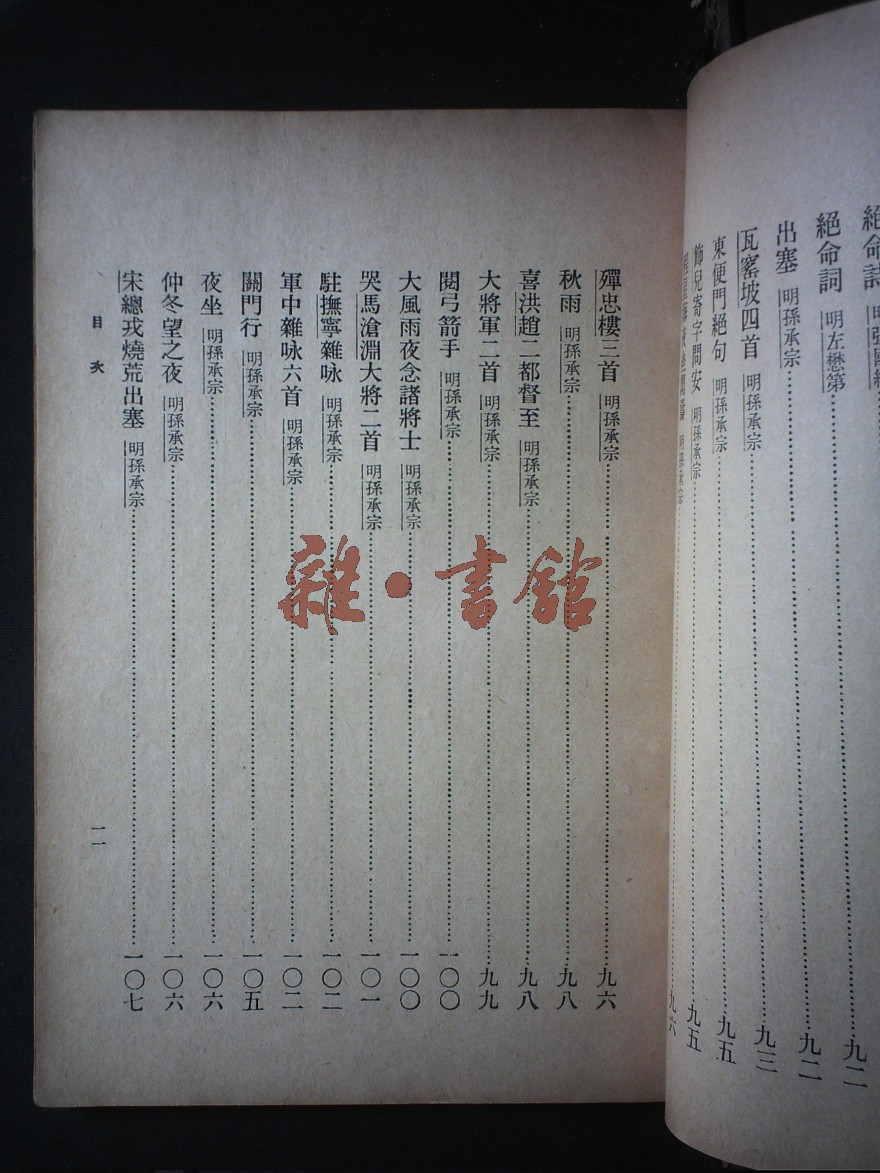 絕命詩
絕命詞 明左懋第……九二
出塞 明孫承宗……九二
瓦窰坡四首 明孫承宗……九三
東便門絕句 明孫承宗……九五
飾兒寄字問安 明孫承宗……九五
明孫承宗……九六
殫忠樓三首 明孫承宗……九六
秋雨 明孫承宗……九八
喜洪趙二都督至 明孫承宗……九八
大將軍二首 明孫承宗……九九
閱弓箭手 明孫承宗……一〇〇
大風雨夜念諸將士 明孫承宗……一〇〇
哭馬滄淵大將二首 明孫承宗……一〇一
駐撫寧雜咏 明孫承宗……一〇二
軍中雜咏六首 明孫承宗……一〇二
關門行 明孫承宗……一〇五
夜坐 明孫承宗……一〇六
仲冬望之夜 明孫承宗……一〇六
宋總戎燒荒出塞 明孫承宗……一〇七
目次
一一
雜·書館